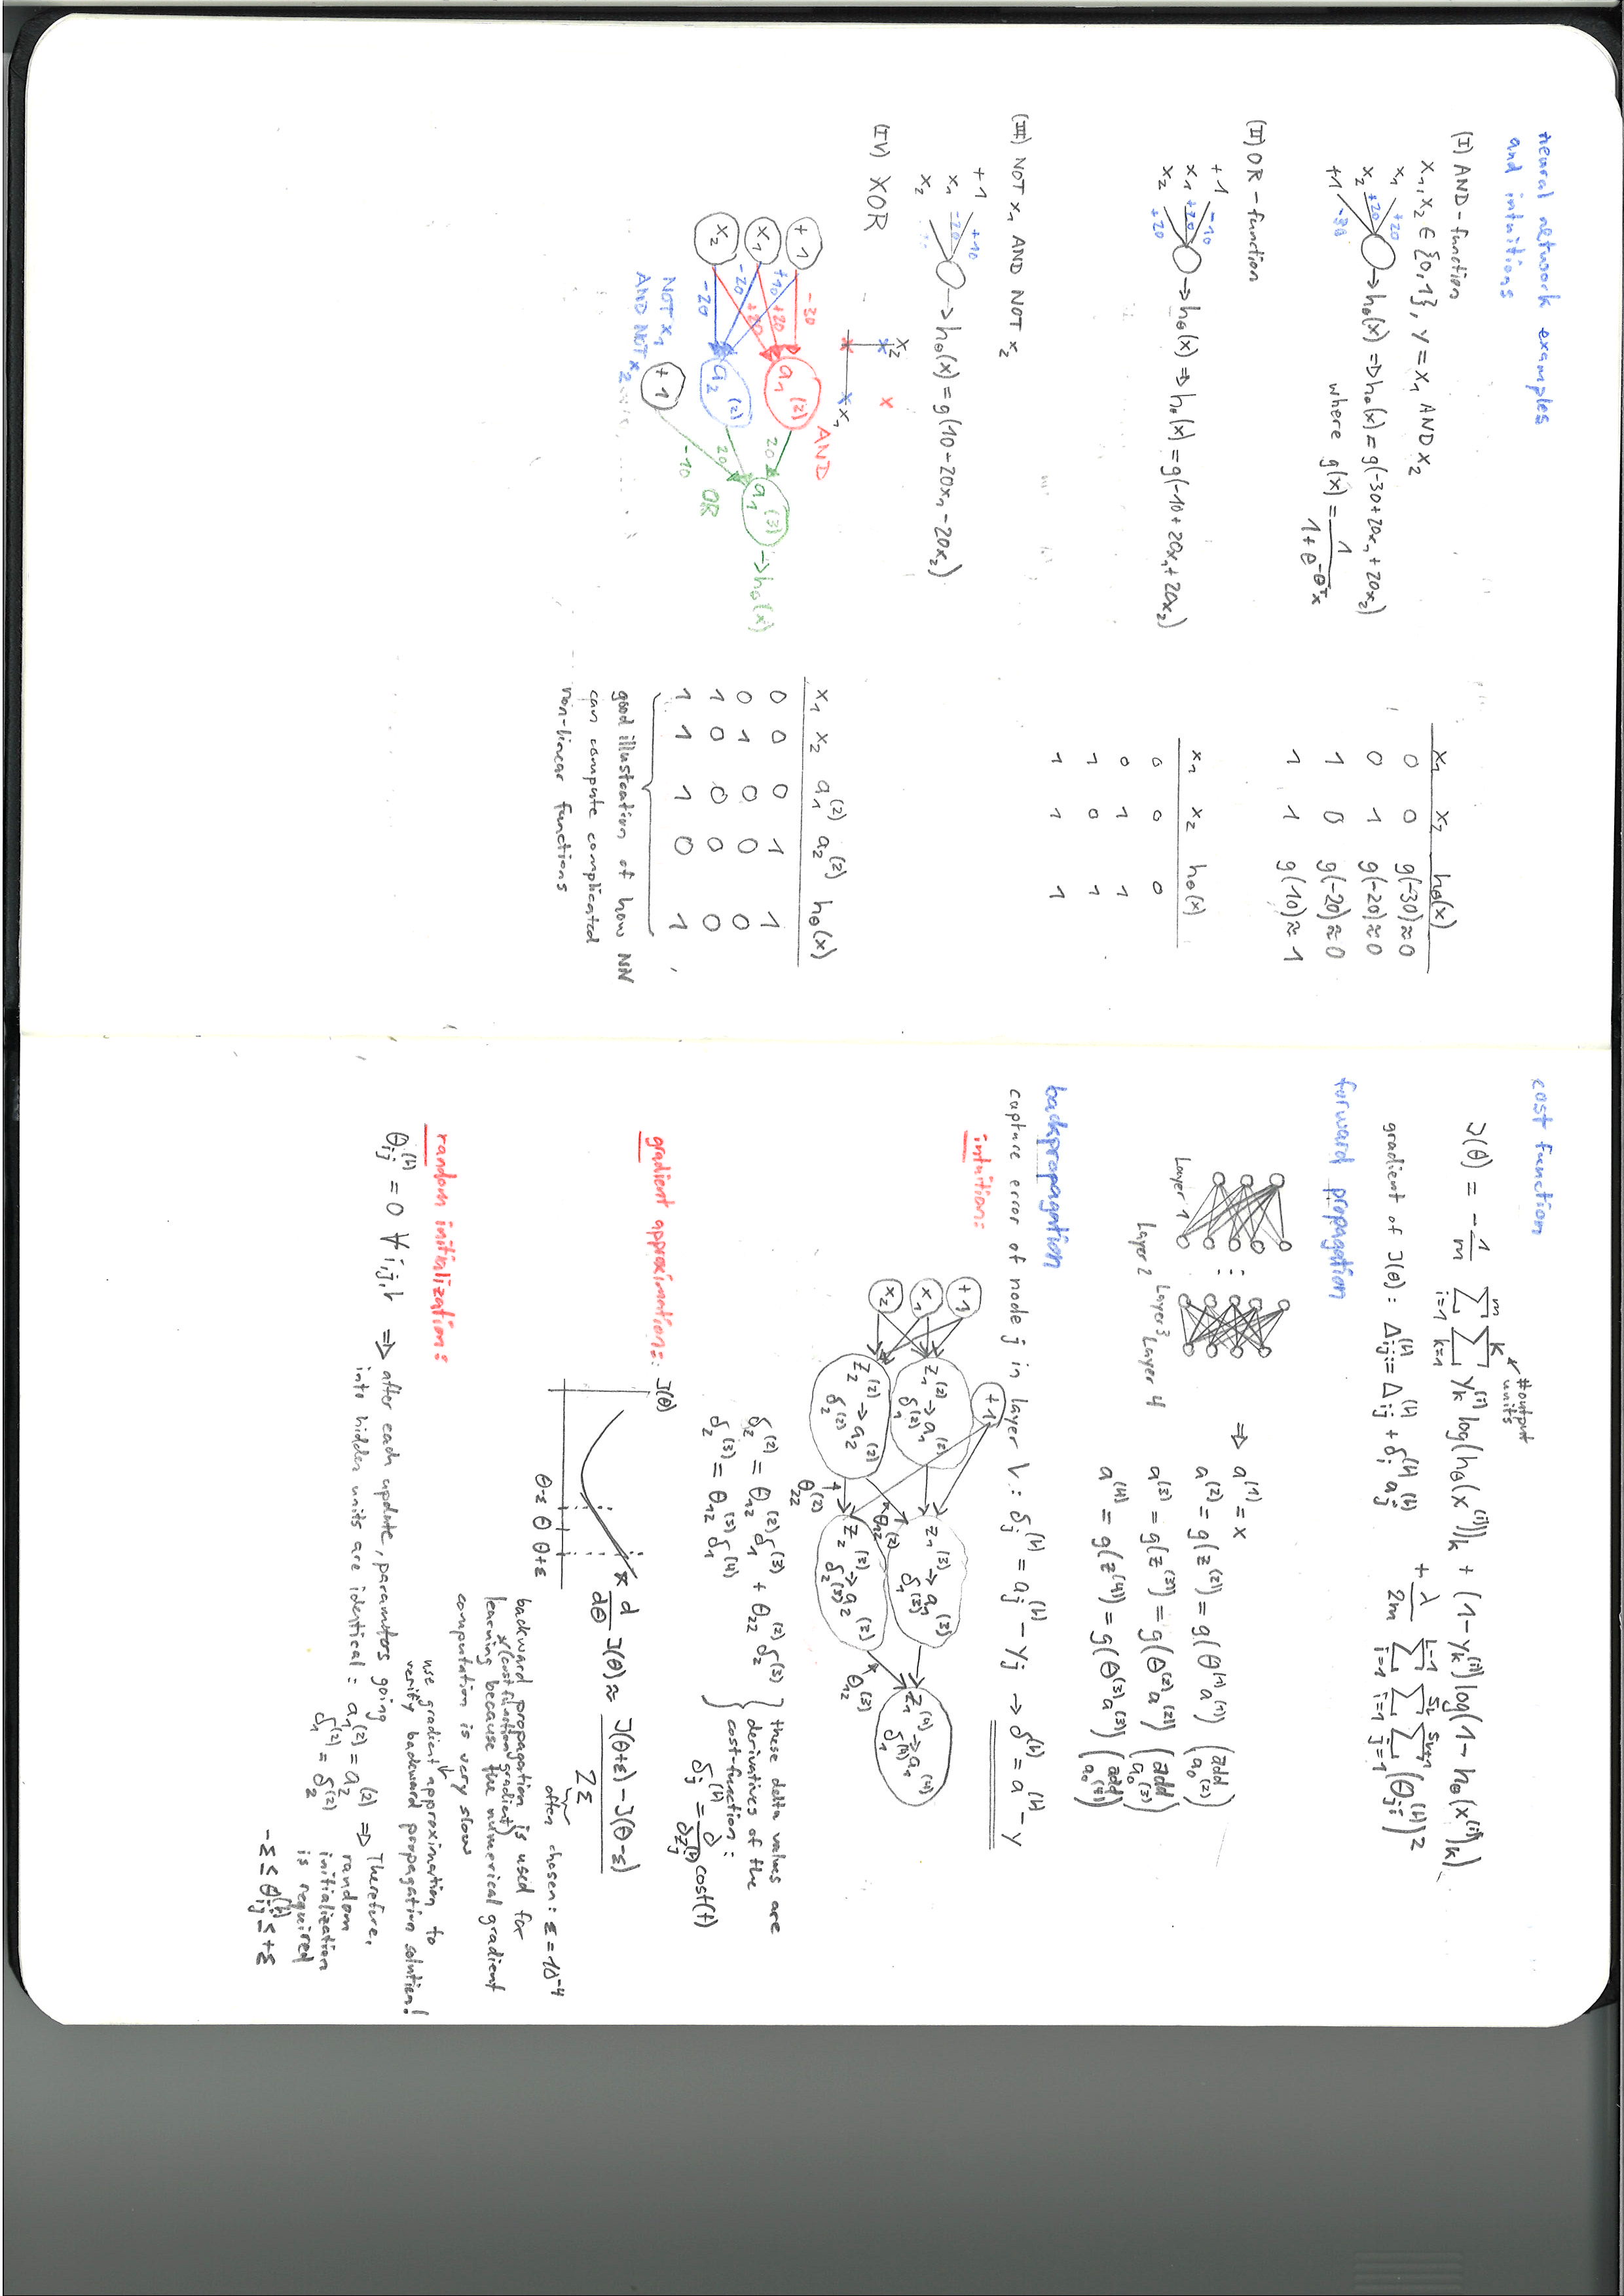 neural network examples
and intuitions
(I) AND-function
x₁, x₂ ∈ {0,1}, y = x₁ AND x₂
x₁ +20
x₂ +20 → hθ(x) ⇒ hθ(x) = g(-30+20x₁+20x₂)
+1 -30
where g(x) = 1 / (1+e^(-θᵀx))
x₁ x₂ hθ(x)
0 0 g(-30)≈0
0 1 g(-20)≈0
1 0 g(-20)≈0
1 1 g(10)≈1
(II) OR-function
+1 -10
x₁ +20 → hθ(x) ⇒ hθ(x) = g(-10+20x₁+20x₂)
x₂ +20
x₁ x₂ hθ(x)
0 0 0
0 1 1
1 0 1
1 1 1
(III) NOT x₁ AND NOT x₂
+1 +10
x₁ -20 → hθ(x) = g(10-20x₁-20x₂)
x₂
(IV) XOR
x₂
x₁
AND
+1 -30 a₁⁽²⁾
+10 +20 20 a₁⁽³⁾ → hθ(x)
x₁ +20
-20 a₂⁽²⁾ 20
x₂ -20 OR
-10
NOT x₁ +1
AND NOT x₂
x₁ x₂ a₁⁽²⁾ a₂⁽²⁾ hθ(x)
0 0 0 1 1
0 1 0 0 0
1 0 0 0 0
1 1 1 0 1
good illustration of how NN
can compute complicated
non-linear functions
cost function
#output
units
J(θ) = -1/m Σ_{i=1}^{m} Σ_{k=1}^{K} y_k^(i) log(hθ(x^(i)))_k + (1-y_k^(i)) log(1-hθ(x^(i))_k)
+ λ/2m Σ_{i=1}^{L-1} Σ_{i=1}^{S_l} Σ_{j=1}^{S_{l+1}} (θ_ji^(l))²
gradient of J(θ): Δ_ij^(l) := Δ_ij^(l) + δ_i^(l) a_j^(l)
forward propagation
Layer 1
Layer 2 Layer 3 Layer 4
⇒ a⁽¹⁾ = x
a⁽²⁾ = g(z⁽²⁾) = g(θ⁽¹⁾a⁽¹⁾) (add a₀⁽²⁾)
a⁽³⁾ = g(z⁽³⁾) = g(θ⁽²⁾a⁽²⁾) (add a₀⁽³⁾)
a⁽⁴⁾ = g(z⁽⁴⁾) = g(θ⁽³⁾a⁽³⁾) (add a₀⁽⁴⁾)
backpropagation
capture error of node j in layer l: δ_j^(l) = a_j^(l) - y_j → δ^(l) = a^(l) - y
intuition:
+1
+1
x₁ z₁⁽²⁾→a₁⁽²⁾ z₁⁽³⁾→a₁⁽³⁾ z₁⁽⁴⁾→a₁⁽⁴⁾
δ₁⁽²⁾ δ₁⁽³⁾ δ₁⁽⁴⁾
x₂ θ₁₂⁽²⁾
z₂⁽²⁾→a₂⁽²⁾ z₂⁽³⁾→a₂⁽³⁾ θ₁₂⁽³⁾
δ₂⁽²⁾ δ₂⁽³⁾
θ₂₂⁽²⁾
δ₂⁽²⁾ = θ₁₂⁽²⁾δ₁⁽³⁾ + θ₂₂⁽²⁾δ₂⁽³⁾
δ₂⁽³⁾ = θ₁₂⁽³⁾δ₁⁽⁴⁾
these delta values are
derivatives of the
cost-function:
δ_j^(l) = ∂/∂z_j^(l) cost(t)
gradient approximation:
J(θ)
θ-ε θ θ+ε
* d/dθ J(θ) ≈ (J(θ+ε)-J(θ-ε)) / 2ε
often chosen: ε = 10⁻⁴
backward propagation is used for
*(cost function gradient)
learning because the numerical gradient
computation is very slow
use gradient approximation to
verify backward propagation solution!
random initialization:
θ_ij^(l) = 0 ∀ i,j,l ⇒ after each update, paramters going
into hidden units are identical: a₁⁽²⁾ = a₂⁽²⁾
δ₁⁽²⁾ = δ₂⁽²⁾
⇒ Therefore,
random
initialization
is required
-ε ≤ θ_ij^(l) ≤ +ε